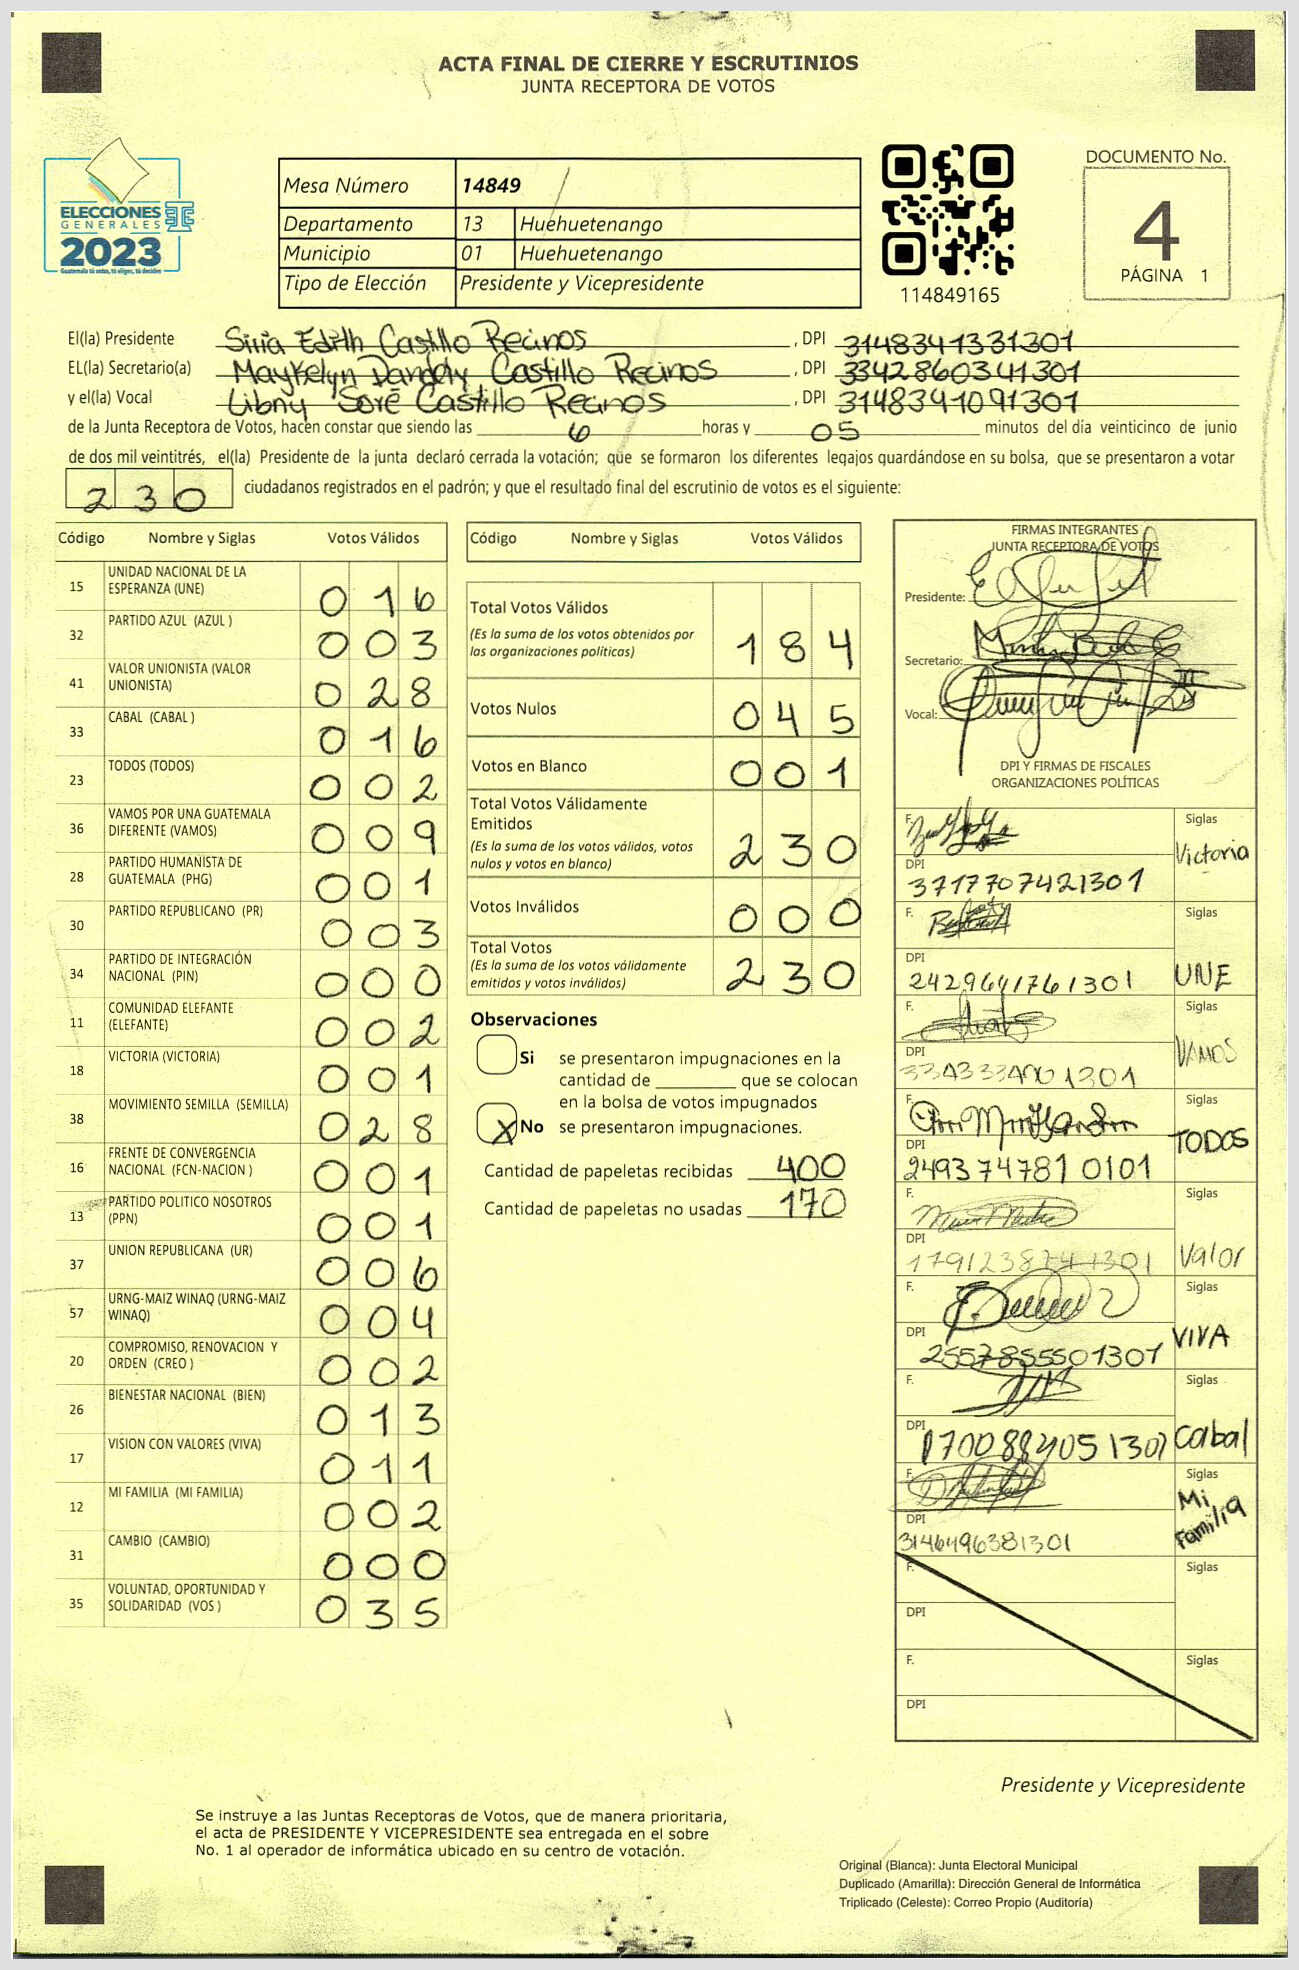 ACTA FINAL DE CIERRE Y ESCRUTINIOS
JUNTA RECEPTORA DE VOTOS
ELECCIONES
GENERALES
2023
Guatemala tú votas, tú eliges, tú decides
Mesa Número 14849
Departamento 13 Huehuetenango
Municipio 01 Huehuetenango
Tipo de Elección Presidente y Vicepresidente
114849165
DOCUMENTO No.
4
PÁGINA 1
El(la) Presidente Siria Edith Castillo Recinos , DPI 3148341331301
EL(la) Secretario(a) Maykelyn Dandely Castillo Recinos , DPI 3342860341301
y el(la) Vocal Libny Soré Castillo Recinos , DPI 3148391091301
de la Junta Receptora de Votos, hacen constar que siendo las 6 horas y 05 minutos del día veinticinco de junio
de dos mil veintitrés, el(la) Presidente de la junta declaró cerrada la votación; que se formaron los diferentes legajos guardándose en su bolsa, que se presentaron a votar
230 ciudadanos registrados en el padrón; y que el resultado final del escrutinio de votos es el siguiente:
Código Nombre y Siglas Votos Válidos
15 UNIDAD NACIONAL DE LA ESPERANZA (UNE) 016
32 PARTIDO AZUL (AZUL ) 003
41 VALOR UNIONISTA (VALOR UNIONISTA) 028
33 CABAL (CABAL ) 016
23 TODOS (TODOS) 002
36 VAMOS POR UNA GUATEMALA DIFERENTE (VAMOS) 009
28 PARTIDO HUMANISTA DE GUATEMALA (PHG) 001
30 PARTIDO REPUBLICANO (PR) 003
34 PARTIDO DE INTEGRACIÓN NACIONAL (PIN) 000
11 COMUNIDAD ELEFANTE (ELEFANTE) 002
18 VICTORIA (VICTORIA) 001
38 MOVIMIENTO SEMILLA (SEMILLA) 028
16 FRENTE DE CONVERGENCIA NACIONAL (FCN-NACION ) 001
13 PARTIDO POLITICO NOSOTROS (PPN) 001
37 UNION REPUBLICANA (UR) 006
57 URNG-MAIZ WINAQ (URNG-MAIZ WINAQ) 004
20 COMPROMISO, RENOVACION Y ORDEN (CREO ) 002
26 BIENESTAR NACIONAL (BIEN) 013
17 VISION CON VALORES (VIVA) 011
12 MI FAMILIA (MI FAMILIA) 002
31 CAMBIO (CAMBIO) 000
35 VOLUNTAD, OPORTUNIDAD Y SOLIDARIDAD (VOS ) 035
Código Nombre y Siglas Votos Válidos
Total Votos Válidos 184
(Es la suma de los votos obtenidos por
las organizaciones políticas)
Votos Nulos 045
Votos en Blanco 001
Total Votos Válidamente
Emitidos 230
(Es la suma de los votos válidos, votos
nulos y votos en blanco)
Votos Inválidos 000
Total Votos 230
(Es la suma de los votos válidamente
emitidos y votos inválidos)
Observaciones
Si se presentaron impugnaciones en la
cantidad de ________ que se colocan
en la bolsa de votos impugnados
X No se presentaron impugnaciones.
Cantidad de papeletas recibidas 400
Cantidad de papeletas no usadas 170
FIRMAS INTEGRANTES
JUNTA RECEPTORA DE VOTOS
Presidente:
Secretario:
Vocal:
DPI Y FIRMAS DE FISCALES
ORGANIZACIONES POLÍTICAS
F. Siglas Victoria
DPI 3717707421301
F. Siglas UNE
DPI 2429641761301
F. Siglas VAMOS
DPI
F. Siglas TODOS
DPI 2493747810101
F. Siglas Valor
DPI
F. Siglas VIVA
DPI 2557855501301
F. Siglas Cabal
DPI
F. Siglas Mi Familia
DPI 3146496381301
F. Siglas
DPI
F. Siglas
DPI
Presidente y Vicepresidente
Se instruye a las Juntas Receptoras de Votos, que de manera prioritaria,
el acta de PRESIDENTE Y VICEPRESIDENTE sea entregada en el sobre
No. 1 al operador de informática ubicado en su centro de votación.
Original (Blanca): Junta Electoral Municipal
Duplicado (Amarilla): Dirección General de Informática
Triplicado (Celeste): Correo Propio (Auditoría)